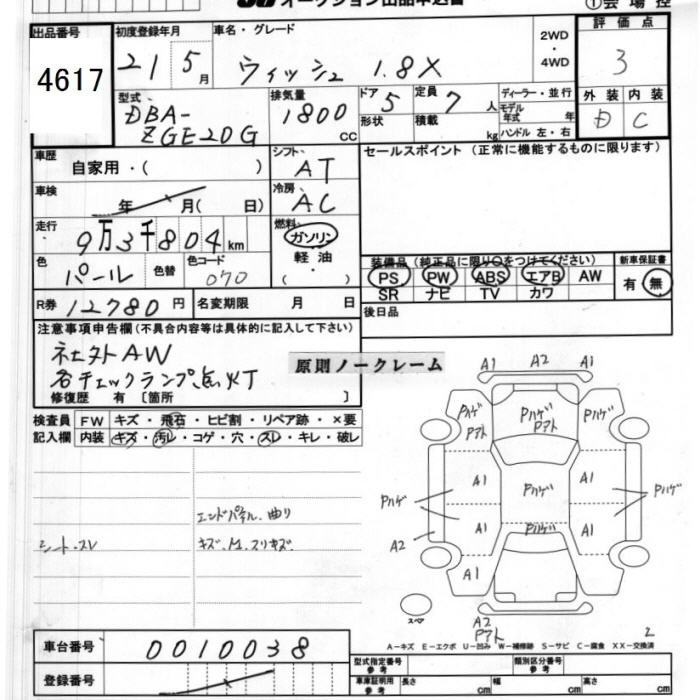 オークション出品申込書
①会場控
出品番号
4617
初度登録年月
21 5月
車名・グレード
ウィッシュ 1.8X
2WD
・
4WD
評価点
3
外装 内装
D C
型式
DBA-
ZGE20G
排気量
1800
CC
ドア 5
形状
定員 7人
積載 kg
ディーラー・並行
モデル
年式 年
ハンドル 左・右
車歴
自家用・( )
車検
年 月( 日)
走行
9万3千804km
色
パール
色替
色コード
070
R券 12780円
名変期限 月 日
シフト
AT
冷房
AC
燃料
ガソリン
軽油
・( )
セールスポイント (正常に機能するものに限ります)
装備品 (純正品に限り○をつけてください)
PS PW ABS エアB AW
SR ナビ TV カワ
新車保証書
有・無
後日品
注意事項申告欄(不具合内容等は具体的に記入して下さい)
社外AW
各チェックランプ点灯
修復歴 有 〔箇所 〕
原則ノークレーム
検査員
記入欄
FW キズ・飛石・ヒビ割・リペア跡・×要
内装 キズ・汚レ・コゲ・穴・スレ・キレ・破レ
エンドパネル、曲り
シート、スレ
キズ、M、スリキズ
A1 A2 A1
Pハゲ
Pアト
Pハゲ
Pアト
Pハゲ
A1 A1
Pハゲ
Pハゲ
Pハゲ
A1 A1
Pハゲ
A2
A1 A1
スペア
A2
Pアト
2
A－キズ E－エクボ U－凹み W－補修跡 S－サビ C－腐食 XX－交換済
車台番号
0010038
登録番号
型式指定番号
参考
類別区分番号
参考
車庫証明用
参考
長さ cm
幅 cm
高さ cm